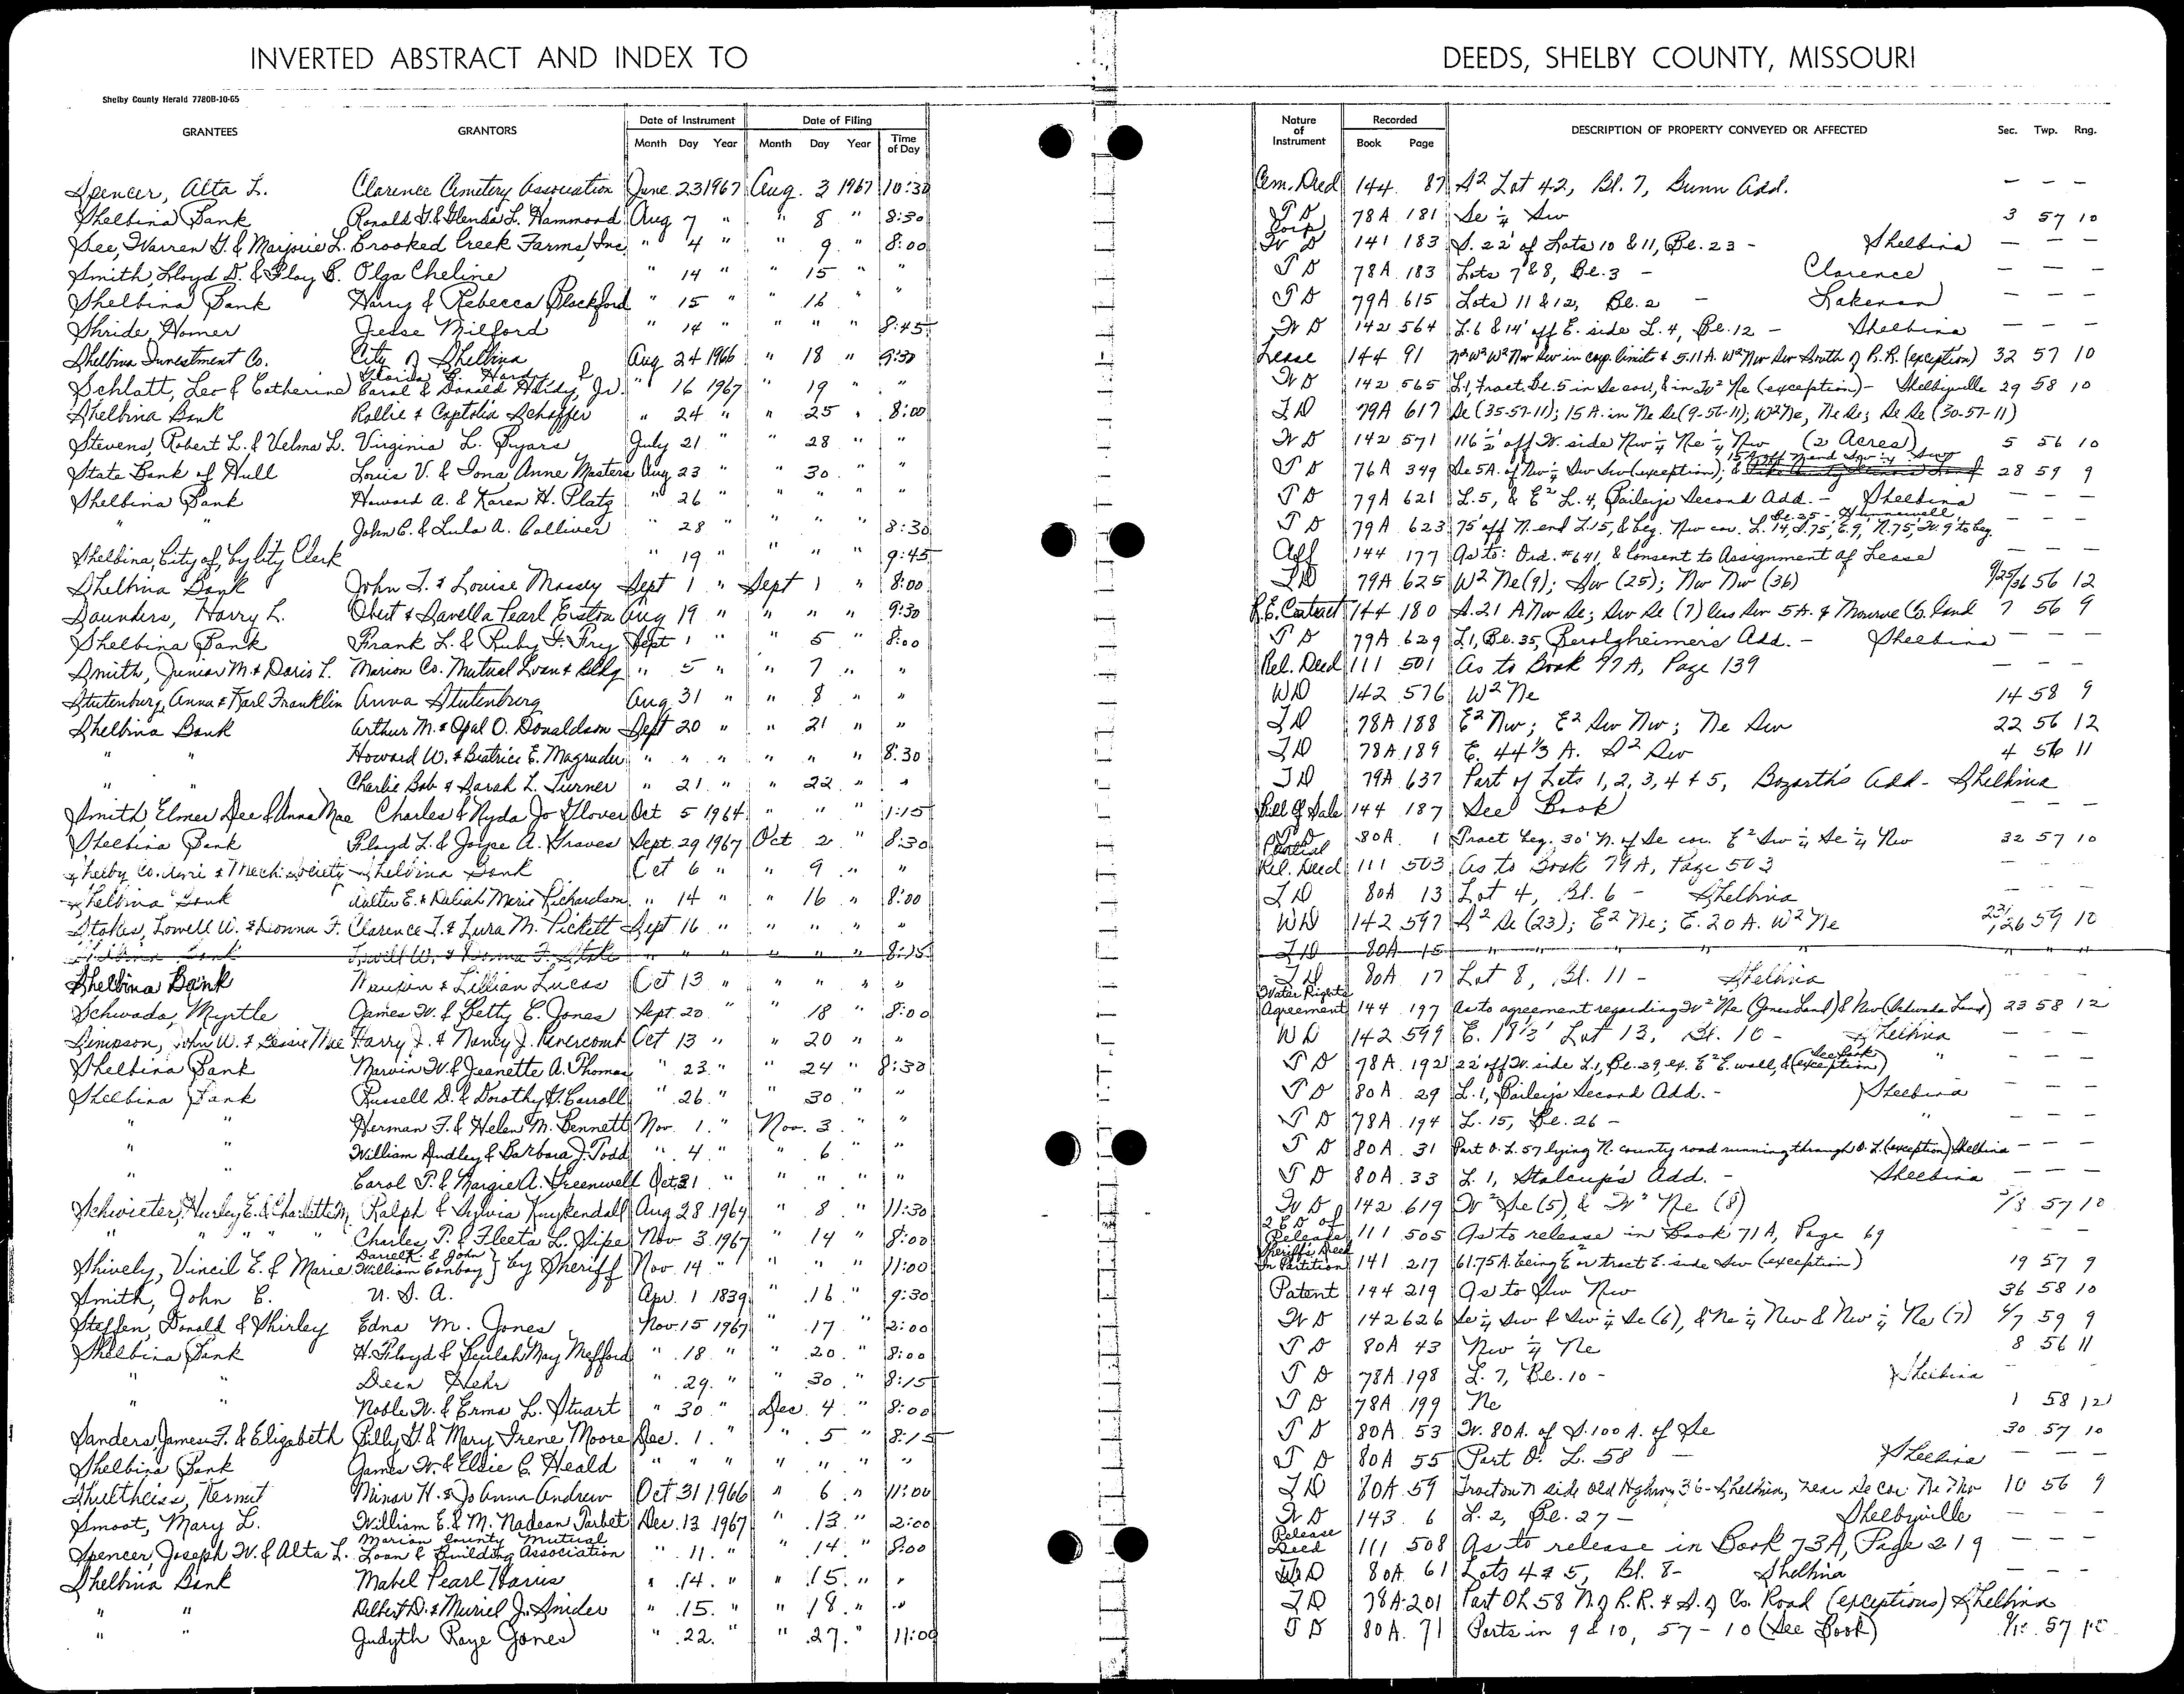 INVERTED ABSTRACT AND INDEX TO DEEDS, SHELBY COUNTY, MISSOURI
Shelby County Herald 7780B-10-65
GRANTEES GRANTORS Date of Instrument Month Day Year Date of Filing Month Day Year Time of Day Nature of Instrument Recorded Book Page DESCRIPTION OF PROPERTY CONVEYED OR AFFECTED Sec. Twp. Rng.
Spencer, Alta L. Clarence Cemetery Association June 23 1967 Aug. 3 1967 10:30 Cem. Deed 144 87 S² Lot 42, Bl. 7, Gunn Add. — — —
Shelbina Bank Ronald G. & Glenda L. Hammond Aug 7 " " 8 " 8:30 T D 78A 181 Se ¼ Sw 3 57 10
See, Warren G. & Marjorie L. Crooked Creek Farms, Inc. " 4 " " 9 " 8:00 Corp W D 141 183 S. 22' of Lots 10 & 11, Bl. 23 - Shelbina — — —
Smith, Lloyd D. & Floy B. Olga Cheline " 14 " " 15 " " T D 78A 183 Lots 7 & 8, Bl. 3 - Clarence — — —
Shelbina Bank Harry & Rebecca Blackford " 15 " " 16 " " T D 79A 615 Lots 11 & 12, Bl. 2 - Lakenan — — —
Shride, Homer Jesse Milford " 14 " " " " 8:45 W D 142 564 L. 6 & 14' off E. side L. 4, Bl. 12 - Shelbina — — —
Shelbina Investment Co. City of Shelbina Aug 24 1966 " 18 " 9:30 Lease 144 91 N²W²W²Nw Sw in corp. limits & 5.11 A. W²Nw Sw South of R.R. (exception) 32 57 10
Schlatt, Leo & Catherine Gloria G. Hardy & Carol & Donald Hardy, Jr. " 16 1967 " 19 " " W D 142 565 L. 1, tract, Bl. 5 in Se cor., & in W² Ne (exception) - Shelbyville 29 58 10
Shelbina Bank Rollie & Captolia Schaffer " 24 " " 25 " 8:00 T D 79A 617 Se (35-57-11); 15 A. in Ne Se (9-56-11); W²Ne, Ne Se; Se Se (30-57-11)
Stevens, Robert L. & Velma L. Virginia L. Byars July 21 " " 28 " " W D 142 571 116½' off W. side Nw ¼ Ne ¼ Nw (2 Acres) 5 56 10
State Bank of Hull Louis V. & Iona Anne Masters Aug 23 " " 30 " " T D 76A 349 Se 5A. of Nw ¼ Sw Sw (exception); & 15 A off N end Sw ¼ Sw 28 59 9
Shelbina Bank Howard A. & Karen H. Platz " 26 " " " " " T D 79A 621 L. 5, & E² L. 4, Bailey's Second Add. - Shelbina — — —
" " John C. & Lula A. Calliver " 28 " " " " 8:30 T D 79A 623 75' off N. end L. 15, & beg. Nw cor. L. 14, S. 75', E. 9', N. 75', W. 9' to beg. Bl. 25 - Hunnewell — — —
Shelbina, City of, by City Clerk " 19 " " " " 9:45 Aff 144 177 As to: Ord. #641, & Consent to Assignment of Lease — — —
Shelbina Bank John T. & Louise Massey Sept 1 " Sept 1 " 8:00 T D 79A 625 W² Ne (9); Sw (25); Nw Nw (36) 9/25/36 56 12
Saunders, Harry L. Obert & Savella Pearl Eiston Aug 19 " " " " 9:30 R.E. Contract 144 180 S. 21 A Nw Se; Sw Se (7) less Sw 5 A. & Monroe Co. land 7 56 9
Shelbina Bank Frank L. & Ruby F. Fry Sept 1 " " 5 " 8:00 T D 79A 629 L. 1, Bl. 35, Berolzheimer's Add. - Shelbina — — —
Smith, Junior M. & Doris L. Marion Co. Mutual Loan & Bldg " 5 " " 7 " " Rel. Deed 111 501 As to Book 77A, Page 139 — — —
Stutenburg, Anna & Karl Franklin Anna Stutenberg Aug 31 " " 8 " " WD 142 576 W² Ne 14 58 9
Shelbina Bank Arthur M. & Opal O. Donaldson Sept 20 " " 21 " " T D 78A 188 E² Nw; E² Sw Nw; Ne Sw 22 56 12
" " Howard W. & Beatrice E. Magruder " " " " " " 8:30 T D 78A 189 E. 44⅓ A. S² Sw 4 56 11
" " Charlie Bob & Sarah L. Turner " 21 " " 22 " " T D 79A 637 Part of Lots 1, 2, 3, 4 & 5, Bozarth's Add - Shelbina
Smith, Elmer Dee & Anna Mae Charles & Nyda Jo Glover Oct 5 1964 " " " 1:15 Bill of Sale 144 187 See Book — — —
Shelbina Bank Floyd L. & Joyce A. Graves Sept. 29 1967 Oct 2 " 8:30 T D 80A 1 Tract beg. 30' N. of Se cor. E² Sw ¼ Se ¼ Nw 32 57 10
Shelby Co. Agri & Mech. Society Shelbina Bank Oct 6 " " 9 " " Partial Rel. Deed 111 503 As to Book 79A, Page 503 — — —
Shelbina Bank Walter E. & Daliah Merie Richardson " 14 " " 16 " 8:00 T D 80A 13 Lot 4, Bl. 6 - Shelbina — — —
Stokes, Lowell W. & Donna F. Clarence T. & Lura M. Pickett Sept 16 " " " " " WD 142 597 S² Se (23); E² Ne; E. 20 A. W² Ne 23/26 59 10
Shelbina Bank Lowell W. & Donna F. Stokes " " " " " 8:15 T D 80A 15 " " " " "
Shelbina Bank Maurin & Lillian Lucas Oct 13 " " " " " T D 80A 17 Lot 8, Bl. 11 - Shelbina — —
Schwada, Myrtle James W. & Betty C. Jones Sept. 20 " " 18 " 8:00 Water Rights Agreement 144 197 As to agreement regarding W² Ne (Jones Land) & Nw (Schwada Land) 23 58 12
Simpson, John W. & Bessie Mae Harry J. & Nancy J. Pevercomb Oct 13 " " 20 " " WD 142 599 E. 18⅓' Lot 13, Bl. 10 - Shelbina — — —
Shelbina Bank Marvin W. & Jeanette A. Thomas " 23 " " 24 " 8:30 T D 78A 192 22' off W. side L. 1, Bl. 29, ex. E² E. wall, & (exception) See Book " — — —
Shelbina Bank Russell D. & Dorothy G. Carroll " 26 " " 30 " " T D 80A 29 L. 1, Bailey's Second Add. - Shelbina — — —
" " Herman F. & Helen M. Bennett Nov. 1 " Nov. 3 " " T D 78A 194 L. 15, Bl. 26 - " — — —
" " William Dudley & Barbara J. Todd " 4 " " 6 " " T D 80A 31 Part O. L. 57 lying N. county road running through O. L. (exception) Shelbina — — —
" " Carol P. & Margie A. Greenwell Oct. 31 " " " " " T D 80A 33 L. 1, Stalcup's Add. - Shelbina — — —
Schwieter, Hurley E. & Charlotte M. Ralph & Sylvia Kuykendall Aug 28 1964 " 8 " 11:30 W D 142 619 W² Se (5), & W² Ne (8) 5/8 57 10
" " " " " Charles P. & Fleeta L. Sipe Nov 3 1967 " 14 " 8:00 2 E D of Release 111 505 As to release in Book 71A, Page 69 — — —
Shively, Vincil E. & Marie Darrell & John William Conboy } by Sheriff Nov. 14 " " " " 11:00 Sheriff's Deed In Partition 141 217 61.75 A. being E² or tract E. side Sw (exception) 19 57 9
Smith, John C. U. S. A. Apr. 1 1839 " 16 " 9:30 Patent 144 219 As to Sw Nw 36 58 10
Steffen, Donald & Shirley Edna M. Jones Nov. 15 1967 " 17 " 2:00 W D 142 626 Se ¼ Sw & Sw ¼ Se (6), & Ne ¼ Nw & Nw ¼ Ne (7) 6/7 59 9
Shelbina Bank H. Floyd & Beulah May Mefford " 18 " " 20 " 8:00 T D 80A 43 Nw ¼ Ne 8 56 11
" " Dean Hehr " 29 " " 30 " 8:15 T D 78A 198 L. 7, Bl. 10 - Shelbina — — —
" " Noble W. & Erma L. Stuart " 30 " Dec. 4 " 8:00 T D 78A 199 Ne 1 58 12
Sanders, James F. & Elizabeth Billy G. & Mary Irene Moore Dec. 1 " " 5 " 8:15 T D 80A 53 W. 80 A. of S. 100 A. of Se 30 57 10
Shelbina Bank James W. & Elsie C. Heald " " " " " " " T D 80A 55 Part O. L. 58 - Shelbina — — —
Shultheiss, Kermit Minor H. & Jo Anna Andrew Oct 31 1966 " 6 " 11:00 T D 80A 59 Tract on N side Old Highway 36 - Shelbina, near Se cor. Ne Nw 10 56 9
Smoot, Mary L. William E. & M. Nadean Tarbet Dec. 13 1967 " 13 " 2:00 W D 143 6 L. 2, Bl. 27 - Shelbyville — — —
Spencer, Joseph W. & Alta L. Marion County Mutual Loan & Building Association " 11 " " 14 " 8:00 Release Deed 111 508 As to release in Book 73A, Page 219 — — —
Shelbina Bank Mabel Pearl Harris " 14 " " 15 " " D 80A 61 Lots 4 & 5, Bl. 8 - Shelbina — — —
" " Delbert D. & Muriel J. Snider " 15 " " 18 " " T D 78A 201 Part OL 58 N. of R. R. & S. of Co. Road (exceptions) Shelbina
" " Judyth Raye Jones " 22 " " 27 " 11:00 T D 80A 71 Parts in 9 & 10, 57-10 (See Book) 9/10 57 10